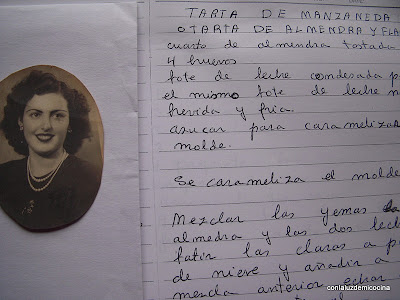 TARTA DE MANZANEDA
O TARTA DE ALMENDRA Y FLA
cuarto de almendra tostada
4 huevos
bote de leche condesada p
el mismo bote de leche n
hervida y fria.
asucar para caramelizar
molde.
Se carameliza el molde
Mezclar las yemas la
almedra y las dos lech
batir las claras a p
de nieve y añadir a
mezcla anterior echar
conlaluzdemicocina